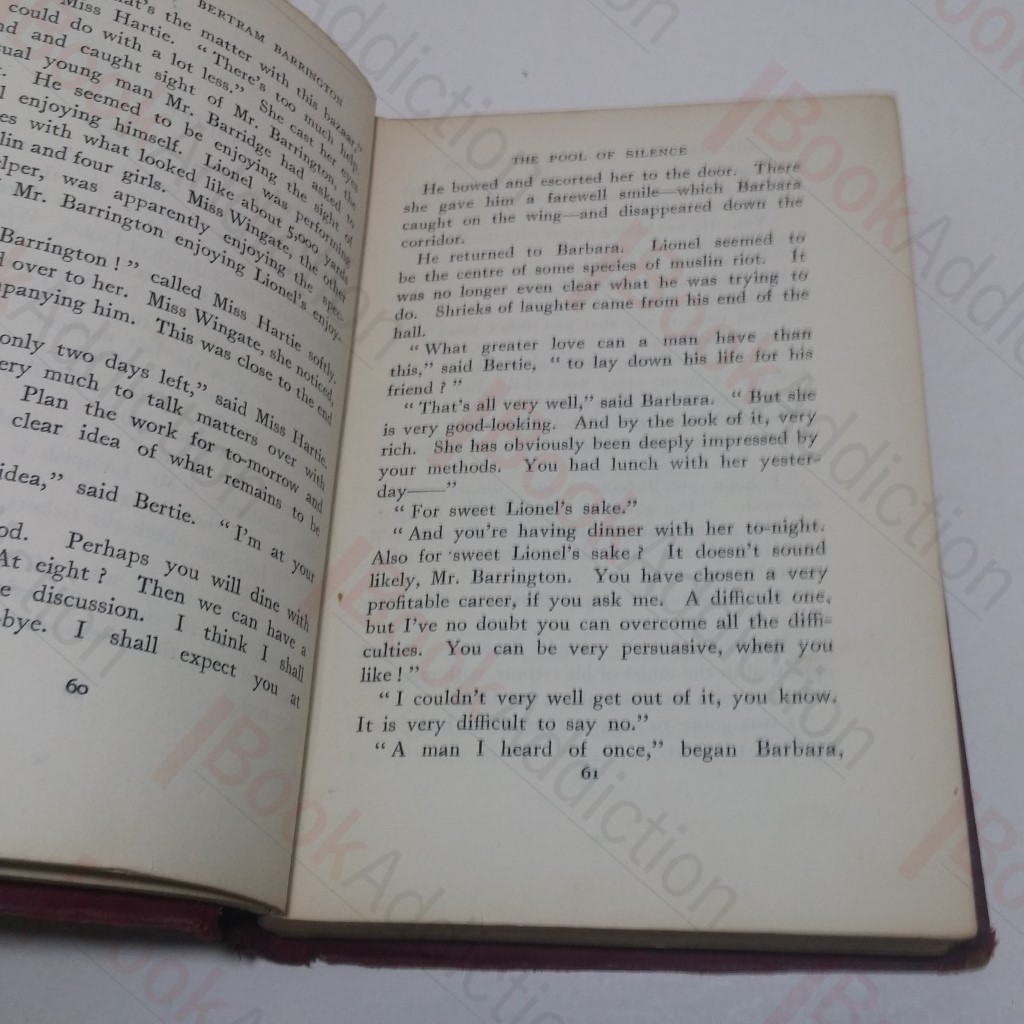 BERTRAM BARRINGTON
what's the matter with this bazaar,"
Miss Hartie. "There's too much help.
could do with a lot less." She cast her eyes
and caught sight of Mr. Barrington, the
young man Mr. Barridge had asked to
He seemed to be enjoying the sight of
enjoying himself. Lionel was performing
with what looked like about 5,000 yards
and four girls. Miss Wingate, the other
was apparently enjoying the spec-
Mr. Barrington enjoying Lionel's enjoy-
Barrington!" called Miss Hartie softly.
over to her. Miss Wingate, she noticed,
him. This was close to the end
only two days left," said Miss Hartie.
very much to talk matters over with
Plan the work for to-morrow and
clear idea of what remains to be
idea," said Bertie. "I'm at your
Perhaps you will dine with
At eight? Then we can have a
discussion. I think I shall
I shall expect you at
60
THE POOL OF SILENCE
He bowed and escorted her to the door. There
she gave him a farewell smile—which Barbara
caught on the wing—and disappeared down the
corridor.
He returned to Barbara. Lionel seemed to
be the centre of some species of muslin riot. It
was no longer even clear what he was trying to
do. Shrieks of laughter came from his end of the
hall.
"What greater love can a man have than
this," said Bertie, "to lay down his life for his
friend?"
"That's all very well," said Barbara. "But she
is very good-looking. And by the look of it, very
rich. She has obviously been deeply impressed by
your methods. You had lunch with her yester-
day——"
"For sweet Lionel's sake."
"And you're having dinner with her to-night.
Also for sweet Lionel's sake? It doesn't sound
likely, Mr. Barrington. You have chosen a very
profitable career, if you ask me. A difficult one,
but I've no doubt you can overcome all the diffi-
culties. You can be very persuasive, when you
like!"
"I couldn't very well get out of it, you know.
It is very difficult to say no."
"A man I heard of once," began Barbara,
61
BookAddiction